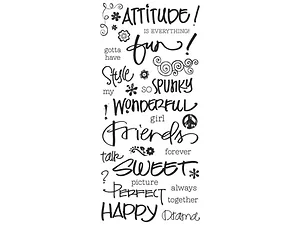 ATTITUDE!
IS EVERYTHING!
gotta have
fun!
Style
my so SPUNKY
! WONDERFUL
girl
Friends
talk forever
? SWEET
picture
PERFECT always
together
HAPPY Drama